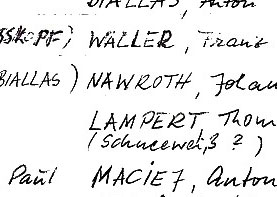 BIALLAS, Anton
SSKOPF) WALLER, Franz
BIALLAS) NAWROTH, Jolan
LAMPERT Thom
(Schneeweiß ?)
Paul MACIEJ, Anton